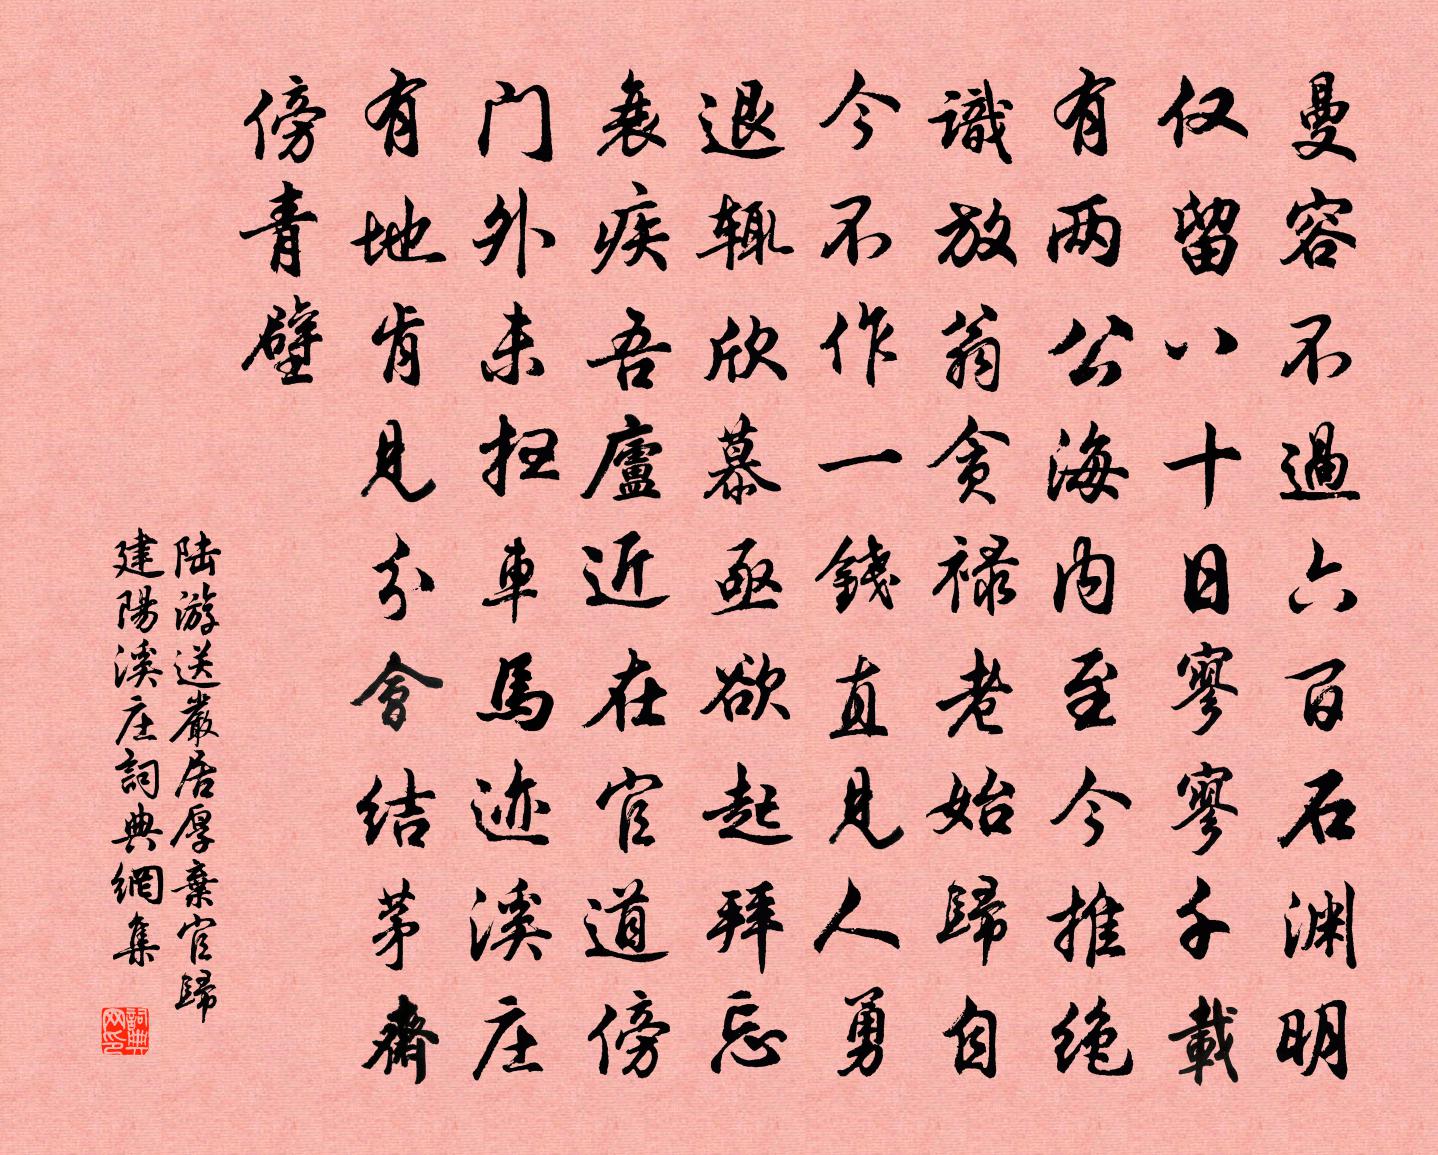 曼容不過六百石渊明
仅留八十日寥寥千載
有两公海内至今推绝
識放翁贪禄老始歸自
今不作一錢直見人勇
退辄欣慕亟欲起拜忘
衰疾吾廬近在官道傍
門外未扫車馬迹溪庄
有地肯見分會结茅齋
傍青壁
陆游送嚴居厚棄官歸
建陽溪庄詞典網集
詞典网印